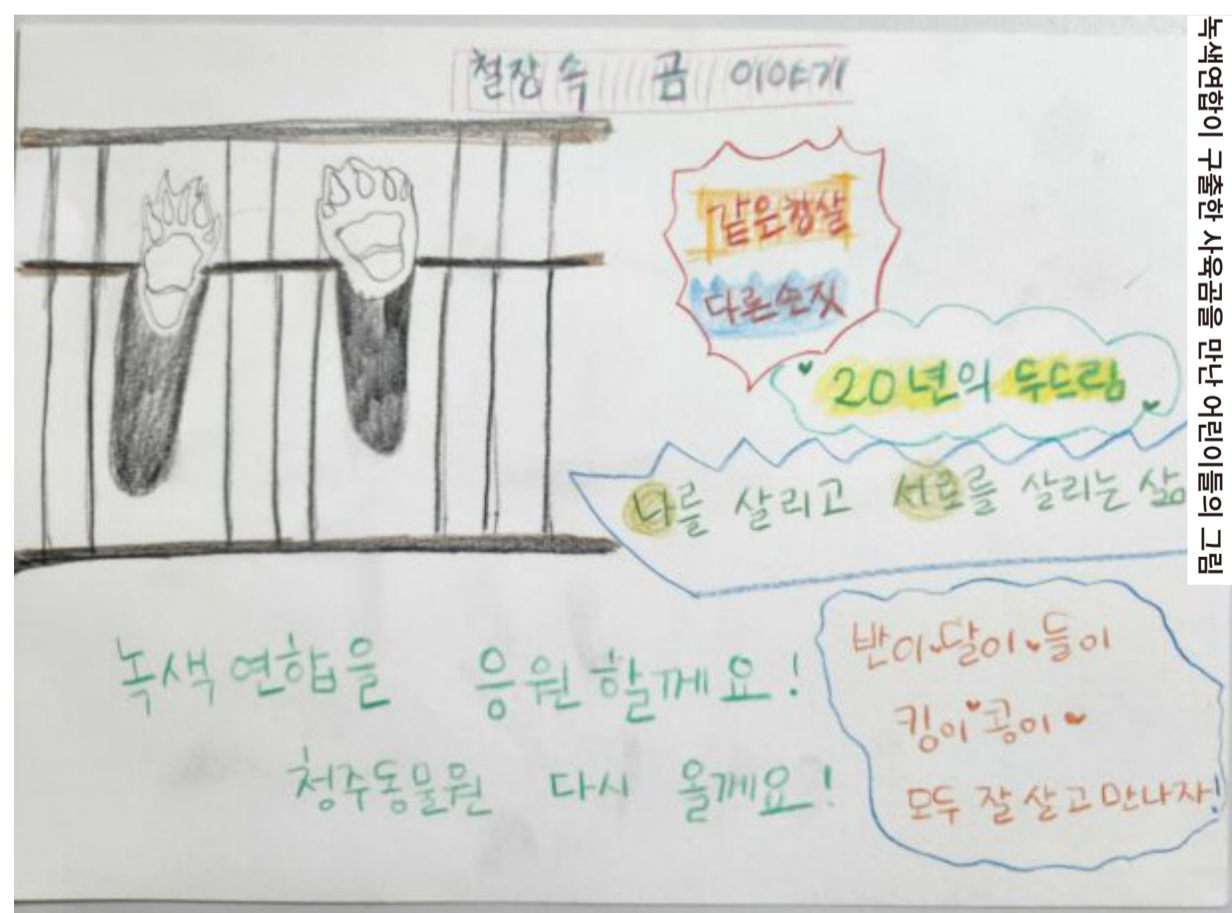 철장 속 곰 이야기
같은창살
다른손짓
20년의 두드림
나를 살리고 서로를 살리는 삶
녹색연합을 응원할께요!
청주동물원 다시 올께요!
반이 달이 들이
킹이 콩이
모두 잘 살고 만나자!
녹색연합이 구출한 사육곰을 만난 어린이들의 그림